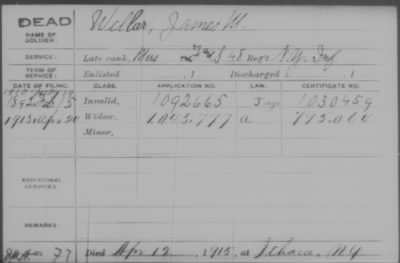 DEAD
NAME OF SOLDIER:
Wellar, James M.
SERVICE:
Late rank, Mus F & S 45 Reg't N.Y. Inf
TERM OF SERVICE:
Enlisted , 1 Discharged , 1
DATE OF FILING. CLASS. APPLICATION NO. LAW. CERTIFICATE NO.
Invalid, 1092665 1030459
1915 Apr 20 Widow, 1045.777 a
Minor,
ADDITIONAL SERVICES:
REMARKS:
77 Died Apr 12, 1915, at Ithaca, N.Y.